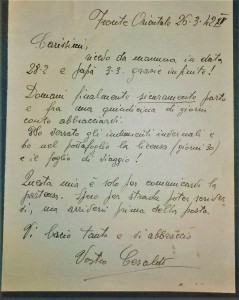 Fronte Orientale 26-3-42 XX
Carissimi,
ricevo da mamma in data
28-2 e papà 3-3. grazie infinite!
Domani finalmente sicuramente parto
e fra una quindicina di giorni
conto abbracciarvi.
Ho versato gli indumenti invernali e
ho nel portafoglio la licenza (giorni 30)
e il foglio di viaggio!
Questa mia è solo per comunicarvi la
partenza. Spero per strada poter scriver
vi, ma arriverò prima della posta.
Vi bacio tanto e vi abbraccio
Vostro